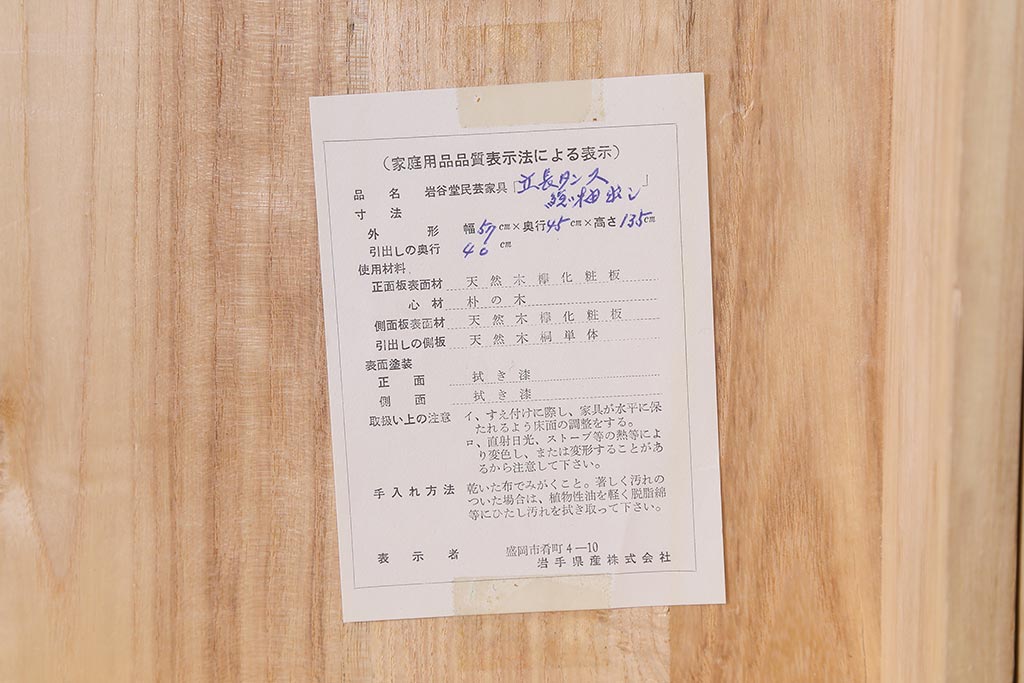 （家庭用品品質表示法による表示）
品名 岩谷堂民芸家具「立長タンス
総桐出し」
寸法
外形 幅57cm×奥行45cm×高さ135cm
引出しの奥行 40cm
使用材料
正面板表面材 天然木欅化粧板
心材 朴の木
側面板表面材 天然木欅化粧板
引出しの側板 天然木桐単体
表面塗装
正面 拭き漆
側面 拭き漆
取扱い上の注意 イ、すえ付けに際し、家具が水平に保
たれるよう床面の調整をする。
ロ、直射日光、ストーブ等の熱等によ
り変色し、または変形することがあ
るから注意して下さい。
手入れ方法 乾いた布でみがくこと。著しく汚れの
ついた場合は、植物性油を軽く脱脂綿
等にひたし汚れを拭き取って下さい。
表示者 盛岡市肴町4―10
岩手県産株式会社